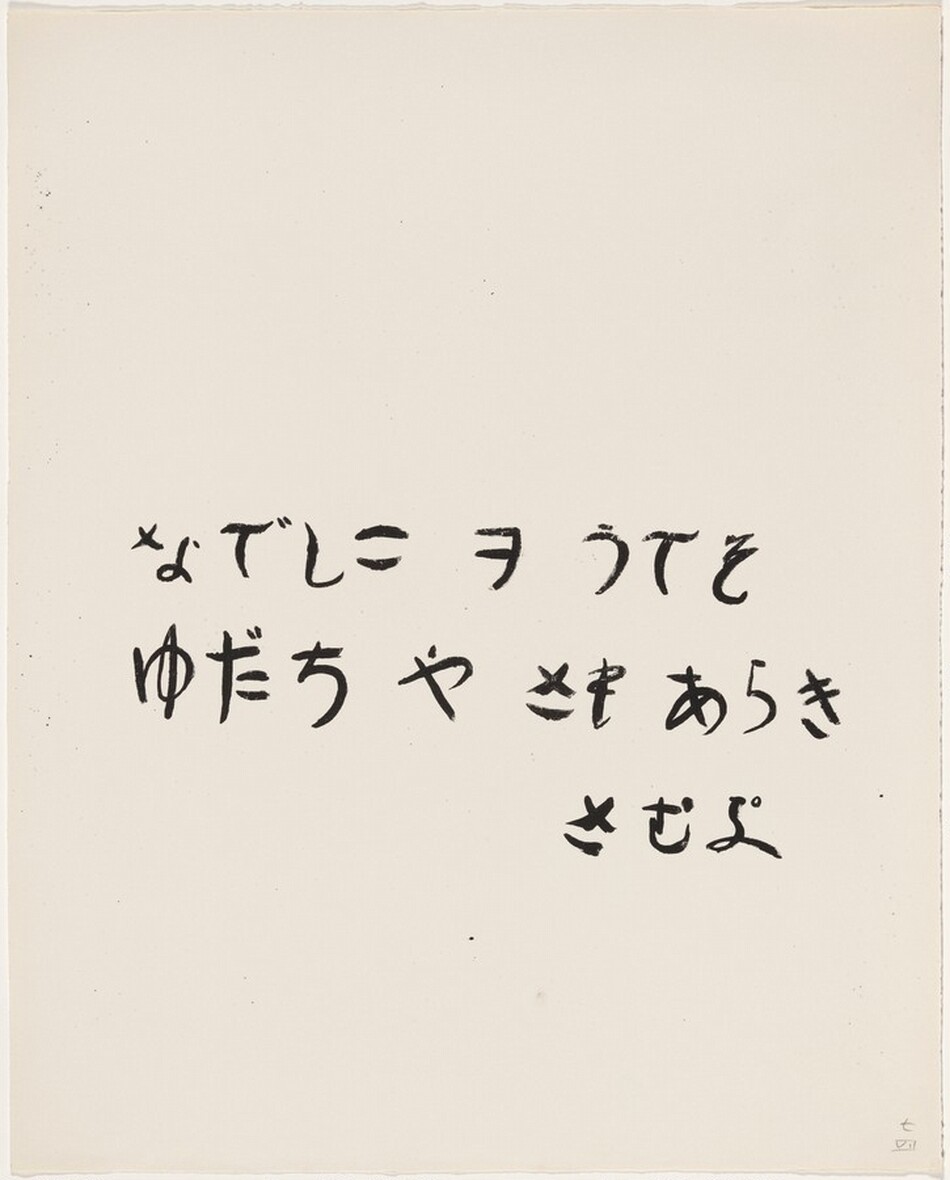 なでしこ ヲ うてそ
ゆだち や さも あらき
さむぷ
七
VII